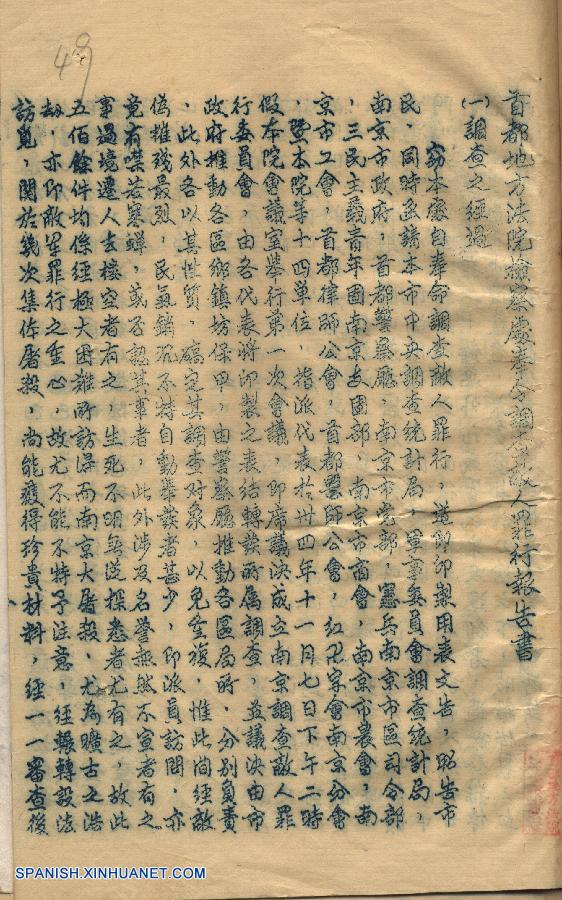 49
首都地方法院檢察處奉令調查敵人罪行報告書
(一)調查之經過
竊本處自奉命調查敵人罪行，遵即印製用表文告，昭告市
民，同時函請本市中央調查統計局，軍事委員會調查統計局，
南京市政府，首都警察廳，南京市党部，憲兵南京市區司令部
，三民主義青年團南京支團部，南京市商會，南京市農會，南
京市工會，首都律師公會，首都醫師公會，紅卍字會南京分會
，暨本院等十四單位，指派代表於卅四年十一月七日下午二時
假本院會議室舉行第一次會議，即席議決成立南京調查敵人罪
行委員會，由各代表將印製之表結轉發所屬調查，並議決由市
政府推動各區鄉鎮坊保甲，由警察廳推動各區局所，分別負責
，此外各以其性質，確定其調查对象，以免重複，惟此間經敵
偽摧殘最烈，民氣銷沉不特自動舉發者甚少，即派員訪問，亦
竟有噤若寒蟬，或否認其事者，此外涉及名譽不宣者有之
事過境遷人去樓空者有之，生死不明無從探悉者尤有之，故此
五佰餘件均係經極大困難所訪得而南京大屠殺，尤為曠古之浩
劫，亦即敵軍罪行之重心，故尤不能不特予注意，經輾轉設法
訪覓，關於幾次集体屠殺，尚能獲得珍貴材料，經一一審查後
SPANISH.XINHUANET.COM